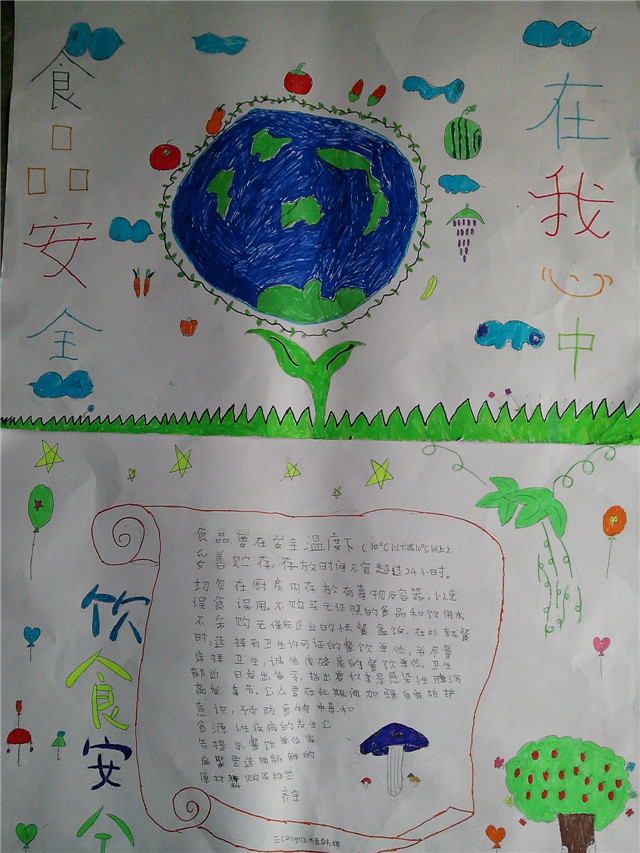 食品安全
在我心中
饮食安全
食品要在安全温度下(10℃以下或60℃以上)
妥善贮存,存放时间不宜超过24小时。
切勿在厨房内存放有毒物及容器,以免
误食误用,不购买无证照的食品和饮用水
不采购无保障企业的快餐盒饭,在外就餐
时,选择有卫生许可证的餐饮单位,并尽量
选择卫生,诚信度较高的餐饮单位,卫生
部近日发出告示,指出夏秋季是感染性腹泻
高发季节,公众要在此期间加强自我防护
意识,预防食物中毒和
食源性疾病的发生公
告提示,餐饮单位
原材料
齐全